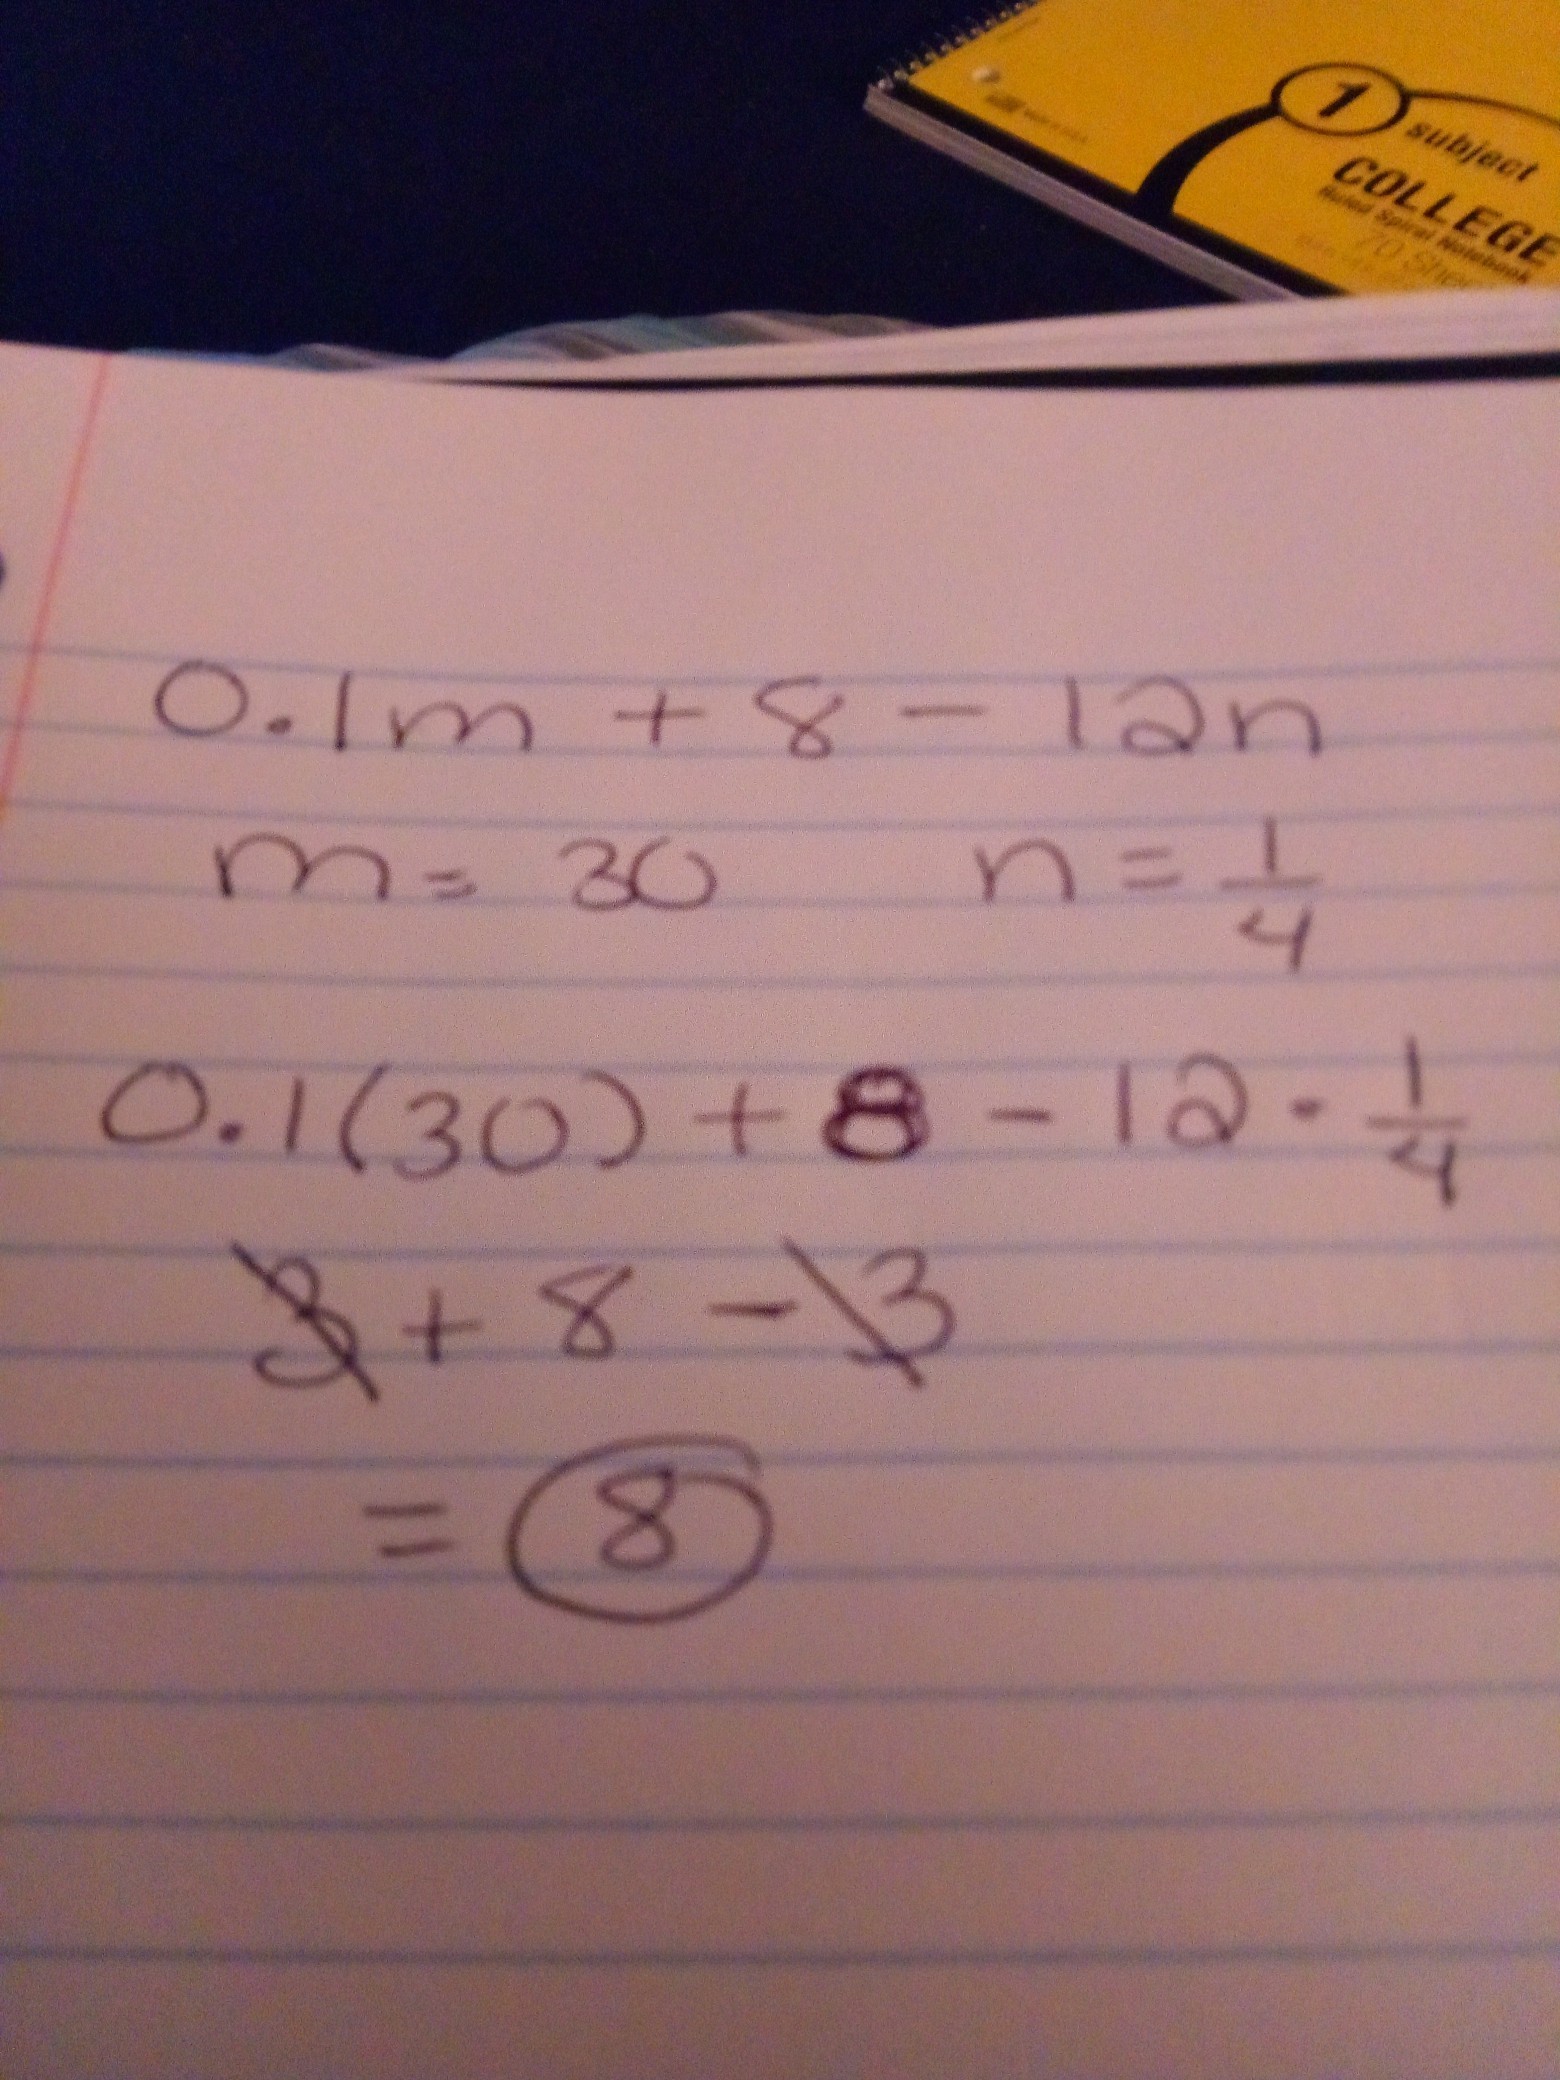 1 subject
COLLEGE
Ruled Spiral Notebook
0.1m + 8 - 12n
m = 30 n = 1/4
0.1(30) + 8 - 12 · 1/4
3 + 8 - 3
= 8